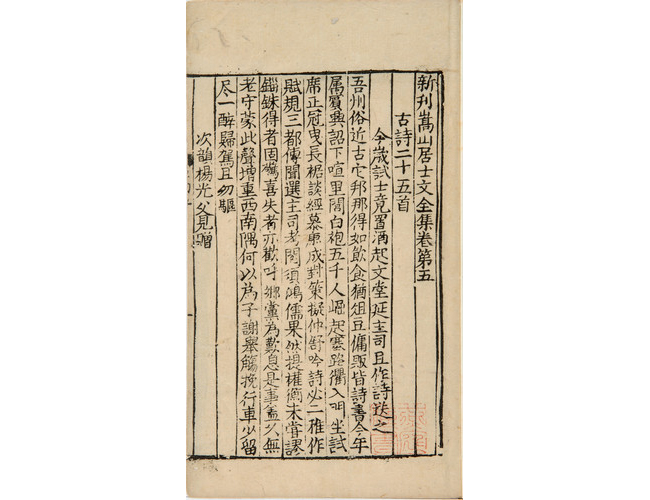 新刊嵩山居士文全集卷第五
古詩二十五首
今歲試士竟置酒起文堂延主司且作詩送之
吾州俗近古它邦那得如飲食猶俎豆傭販皆詩書今年
属賓興詔下喧里閭白袍五千人崛起塞路衢入門坐試
席正冠曳長裾談經慕康成對策擬仲舒吟詩必二雅作
賦規三都傳聞選主司考閱須鴻儒果然提權衡未嘗謬
錙銖得者固驚喜失者亦歡呼鄉黨為歎息是事蓋久無
老守蒙此聲增重西南隅何以為子謝舉觴挽行車少留
尽一醉歸駕且勿驅
次韻楊光父見贈